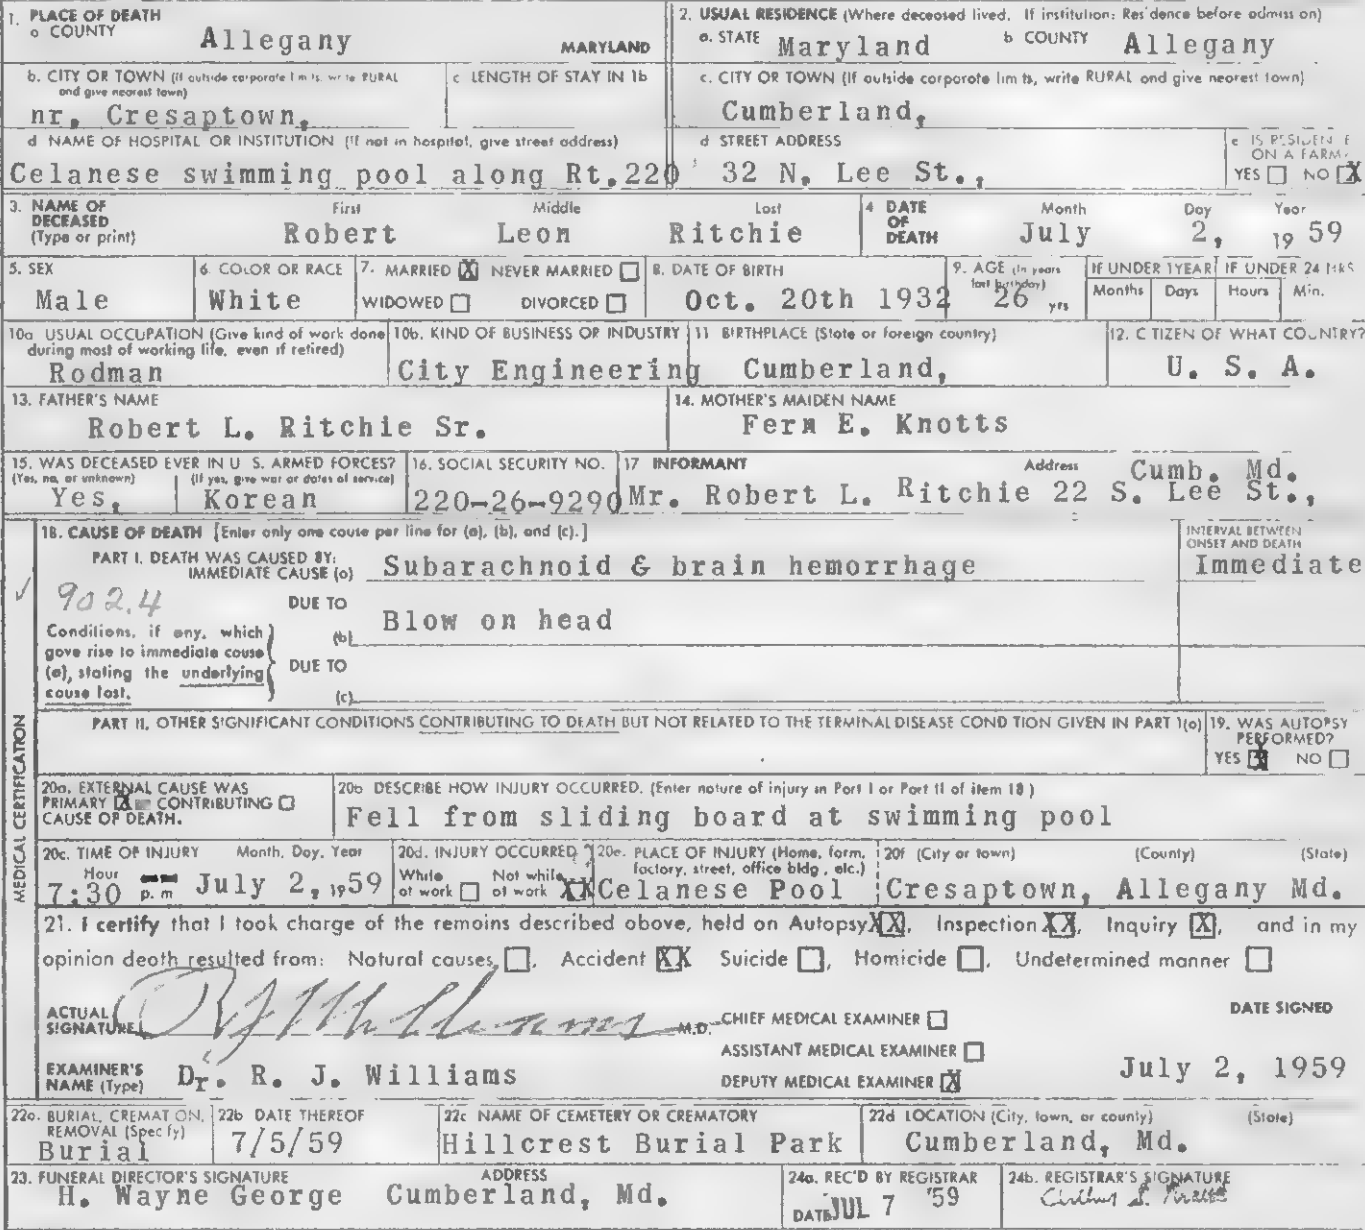 1. PLACE OF DEATH
a COUNTY Allegany MARYLAND
2. USUAL RESIDENCE (Where deceased lived. If institution: Residence before admission)
a. STATE Maryland b COUNTY Allegany
b. CITY OR TOWN (If outside corporate limits, write RURAL and give nearest town)
nr. Cresaptown,
c LENGTH OF STAY IN 1b
c. CITY OR TOWN (If outside corporate limits, write RURAL and give nearest town)
Cumberland,
d NAME OF HOSPITAL OR INSTITUTION (If not in hospital, give street address)
Celanese swimming pool along Rt.220
d STREET ADDRESS
32 N. Lee St.,
e IS RESIDENCE ON A FARM?
YES ☐ NO ☒
3. NAME OF DECEASED (Type or print)
First Middle Last
Robert Leon Ritchie
4 DATE OF DEATH
Month Day Year
July 2, 19 59
5. SEX
Male
6. COLOR OR RACE
White
7. MARRIED ☒ NEVER MARRIED ☐
WIDOWED ☐ DIVORCED ☐
8. DATE OF BIRTH
Oct. 20th 1932
9. AGE (In years last birthday)
26 yrs
IF UNDER 1 YEAR
Months Days
IF UNDER 24 HRS
Hours Min.
10a USUAL OCCUPATION (Give kind of work done during most of working life, even if retired)
Rodman
10b. KIND OF BUSINESS OR INDUSTRY
City Engineering
11 BIRTHPLACE (State or foreign country)
Cumberland,
12. CITIZEN OF WHAT COUNTRY?
U. S. A.
13. FATHER'S NAME
Robert L. Ritchie Sr.
14. MOTHER'S MAIDEN NAME
Fern E. Knotts
15. WAS DECEASED EVER IN U S. ARMED FORCES?
(Yes, no, or unknown) (If yes, give war or dates of service)
Yes, Korean
16. SOCIAL SECURITY NO.
220-26-9290
17 INFORMANT Address
Mr. Robert L. Ritchie 22 S. Lee St., Cumb. Md.
MEDICAL CERTIFICATION
18. CAUSE OF DEATH [Enter only one cause per line for (a), (b), and (c).]
INTERVAL BETWEEN ONSET AND DEATH
PART I. DEATH WAS CAUSED BY:
IMMEDIATE CAUSE (a) Subarachnoid & brain hemorrhage Immediate
902.4
DUE TO
(b) Blow on head
Conditions, if any, which gave rise to immediate cause (a), stating the underlying cause last.
DUE TO
(c)
PART II. OTHER SIGNIFICANT CONDITIONS CONTRIBUTING TO DEATH BUT NOT RELATED TO THE TERMINAL DISEASE CONDITION GIVEN IN PART 1(a)
19. WAS AUTOPSY PERFORMED?
YES ☒ NO ☐
20a. EXTERNAL CAUSE WAS
PRIMARY ☒ CONTRIBUTING ☐
CAUSE OF DEATH.
20b DESCRIBE HOW INJURY OCCURRED. (Enter nature of injury in Part I or Part II of item 18)
Fell from sliding board at swimming pool
20c. TIME OF INJURY Month, Day, Year
Hour
7:30 p.m July 2, 1959
20d. INJURY OCCURRED
While at work ☐ Not while at work XX
20e. PLACE OF INJURY (Home, farm, factory, street, office bldg., etc.)
Celanese Pool
20f (City or town) (County) (State)
Cresaptown, Allegany Md.
21. I certify that I took charge of the remains described above, held on Autopsy XX, Inspection XX, Inquiry X, and in my
opinion death resulted from: Natural causes ☐, Accident XX Suicide ☐, Homicide ☐. Undetermined manner ☐
ACTUAL SIGNATURE R J Williams M.D.
CHIEF MEDICAL EXAMINER ☐
ASSISTANT MEDICAL EXAMINER ☐
DEPUTY MEDICAL EXAMINER ☒
DATE SIGNED
July 2, 1959
EXAMINER'S NAME (Type) Dr. R. J. Williams
22a. BURIAL, CREMATION, REMOVAL (Specify)
Burial
22b DATE THEREOF
7/5/59
22c NAME OF CEMETERY OR CREMATORY
Hillcrest Burial Park
22d LOCATION (City, town, or county) (State)
Cumberland, Md.
23. FUNERAL DIRECTOR'S SIGNATURE ADDRESS
H. Wayne George Cumberland, Md.
24a. REC'D BY REGISTRAR
DATE JUL 7 '59
24b. REGISTRAR'S SIGNATURE